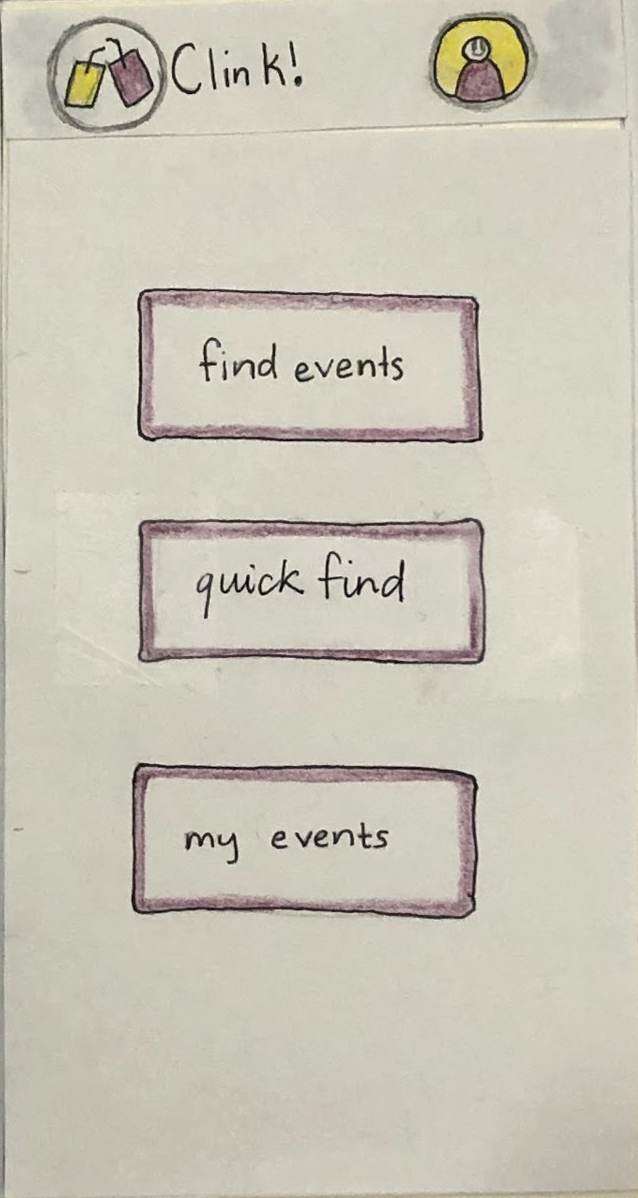 Clink!
find events
quick find
my events